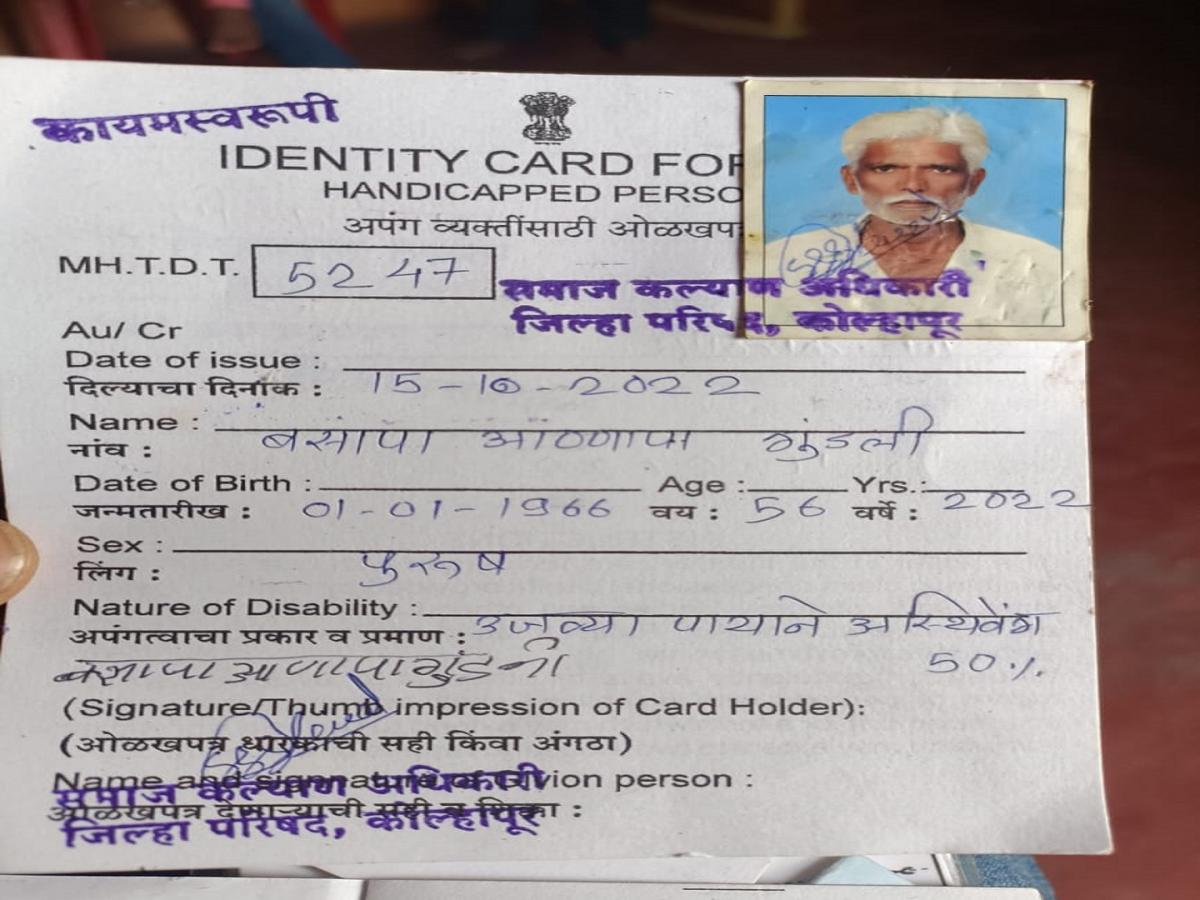 कायमस्वरूपी
IDENTITY CARD FOR
HANDICAPPED PERSO
अपंग व्यक्तींसाठी ओळखप
MH.T.D.T. 5247
समाज कल्याण अधिकारी
जिल्हा परिषद, कोल्हापूर
Au/ Cr
Date of issue :
दिल्याचा दिनांक : 15-10-2022
Name :
नांव : बसापा आण्णापा गुंडली
Date of Birth : Age : Yrs.:
जन्मतारीख : 01-01-1966 वय : 56 वर्षे : 2022
Sex :
लिंग : पुरूष
Nature of Disability :
अपंगत्वाचा प्रकार व प्रमाण : उजव्या पायाने अस्थिव्यंग
50%.
(Signature/Thumb impression of Card Holder):
(ओळखपत्र धारकाची सही किंवा अंगठा)
Name and person :
समाज कल्याण अधिकारी
ओळखपत्र देणाऱ्याची सही व शिक्का :
जिल्हा परिषद, कोल्हापूर